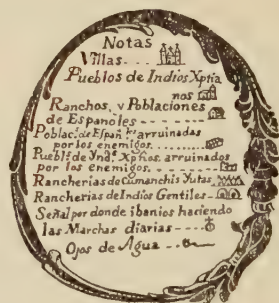 Notas
Villas...
Pueblos de Indios Xptia
nos
Ranchos, v Poblaciones
de Espanoles ------
Poblac.s de Españ.les arruinadas
por los enemigos......
Puebls de Ynd.s Xpños arruinados
por los enemigos. -------
Rancherias de Cumanchis Yutas
Rancherias de Indios Gentiles --
Señal por donde ibanios haciendo
las Marchas diarias -----
Ojos de Agua ...